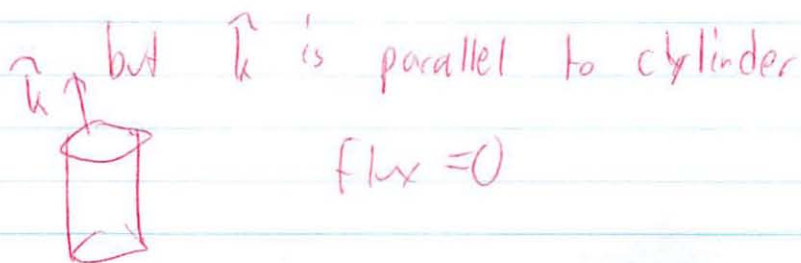 but k̂ is parallel to cylinder
k̂
flux =0